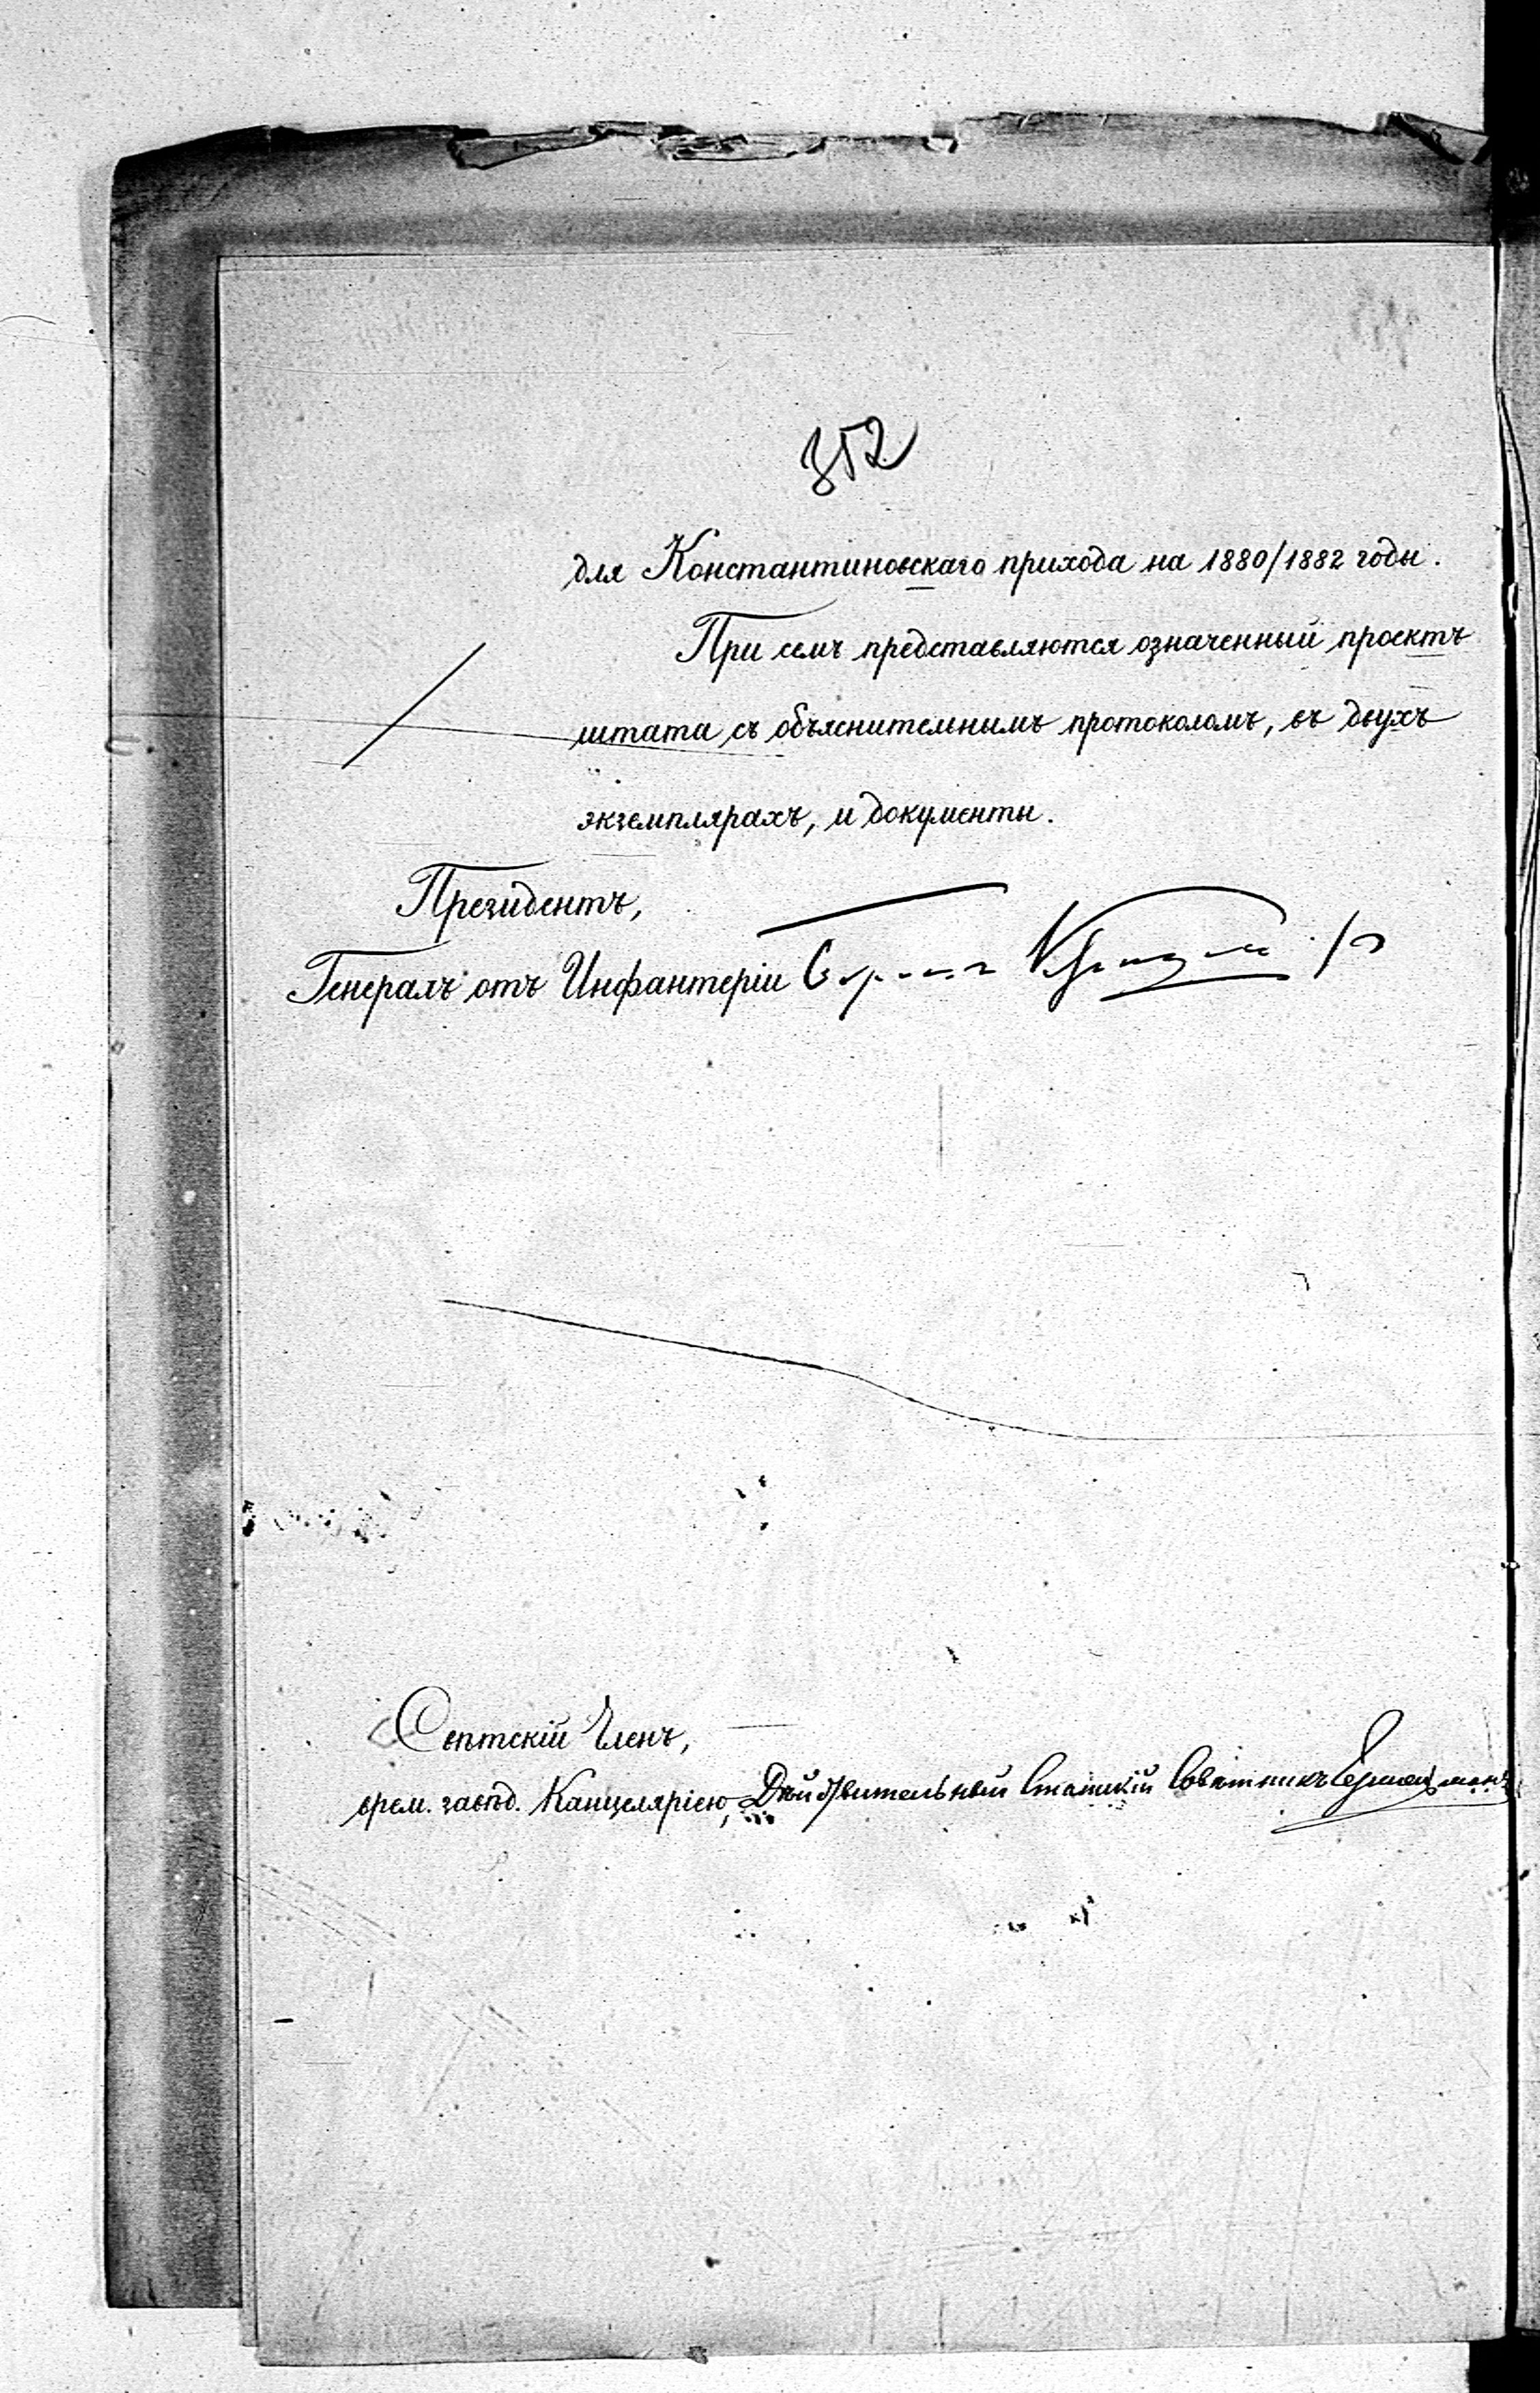 352
для Константиновскаго прихода на 1880/1882 годы.
При семъ представляются означенный проектъ
штата съ объяснительнымъ протоколомъ, въ двухъ
экземплярахъ, и документы.
Президентъ,
Генералъ отъ Инфантеріи
Свѣтскій Членъ,
врем. завѣд. Канцеляріею, Дѣйствительный Статскій Совѣтникъ